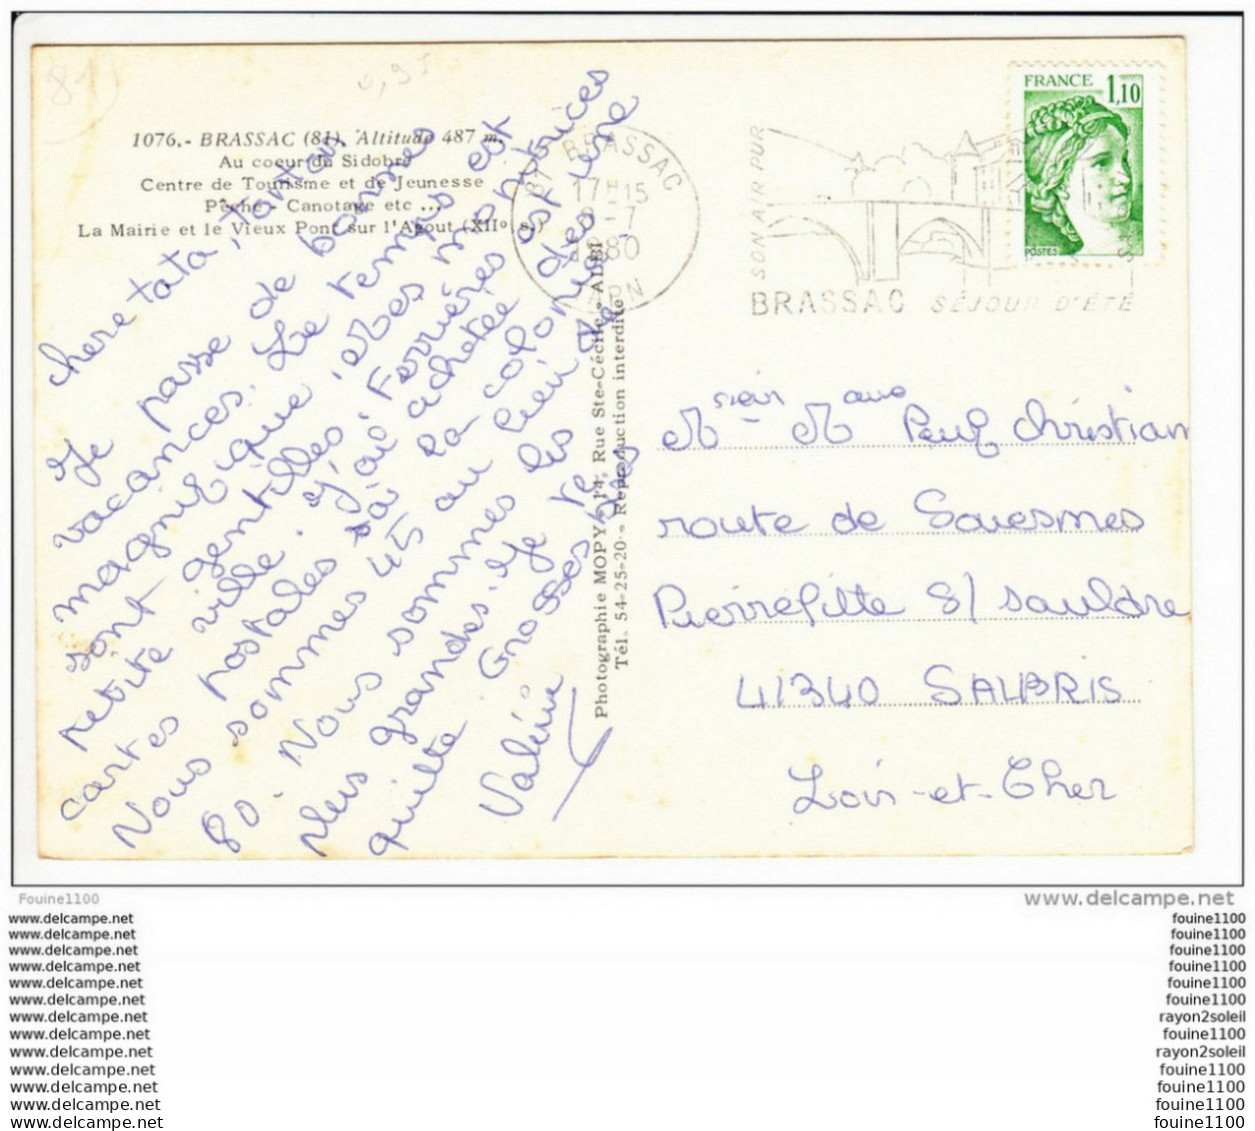 81)
0,95
1076.- BRASSAC (81), Altitude 487 m.
Au coeur du Sidobre
Centre de Tourisme et de Jeunesse
Pêche, Canotage etc ...
La Mairie et le Vieux Pont sur l'Agout (XIIo s.)
chere tata, Tonton
Je passe de bonnes
vacances. Le temps est
magnifique
sont gentilles.
petite ville. j'ai
cartes postales
Nous sommes 45 au lieu de
80 - Nous sommes les
plus grandes. Je te
quitte Grosses
Valérie
Photographie MOPY - 14, Rue Ste-Cécile - ALBI
Tél. 54-25-20 - Reproduction interdite
81 BRASSAC
17H15
-7
1980
TARN
SON AIR PUR
BRASSAC SÉJOUR D'ÉTÉ
FRANCE 1,10
POSTES
Msieur Mame Peuf Christian
route de Souesmes
Pierrefitte s/ sauldre
41340 SALBRIS
Loir-et-Cher
Fouine1100
www.delcampe.net
www.delcampe.net
www.delcampe.net
www.delcampe.net
www.delcampe.net
www.delcampe.net
www.delcampe.net
www.delcampe.net
www.delcampe.net
www.delcampe.net
www.delcampe.net
www.delcampe.net
www.delcampe.net
www.delcampe.net
fouine1100
fouine1100
fouine1100
fouine1100
fouine1100
fouine1100
rayon2soleil
fouine1100
rayon2soleil
fouine1100
fouine1100
fouine1100
fouine1100